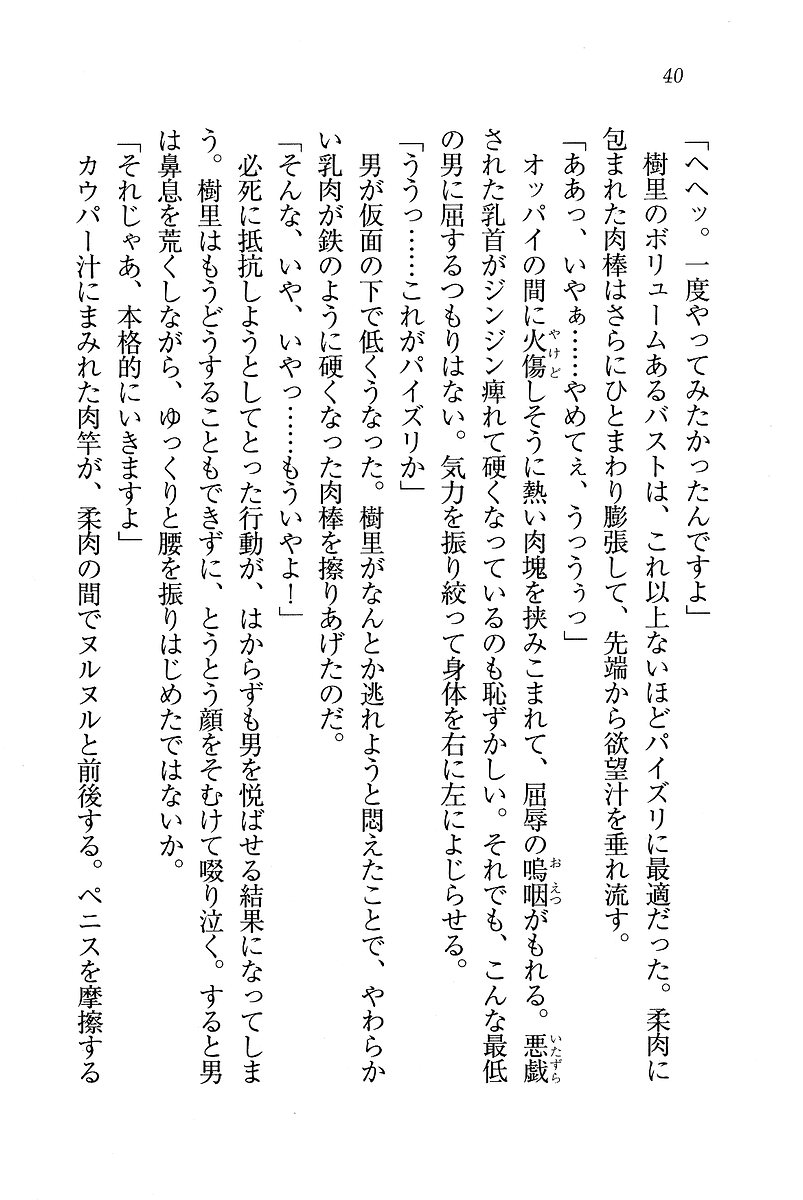 40
「ヘヘッ。一度やってみたかったんですよ」
樹里のボリュームあるバストは、これ以上ないほどパイズリに最適だった。柔肉に
包まれた肉棒はさらにひとまわり膨張して、先端から欲望汁を垂れ流す。
「ああっ、いやぁ……やめてぇ、うっうぅっ」
オッパイの間に火傷しそうに熱い肉塊を挟みこまれて、屈辱の嗚咽がもれる。悪戯
された乳首がジンジン痺れて硬くなっているのも恥ずかしい。それでも、こんな最低
の男に屈するつもりはない。気力を振り絞って身体を右に左によじらせる。
「ううっ……これがパイズリか」
男が仮面の下で低くうなった。樹里がなんとか逃れようと悶えたことで、やわらか
い乳肉が鉄のように硬くなった肉棒を擦りあげたのだ。
「そんな、いや、いやっ……もういやよ！」
必死に抵抗しようとしてとった行動が、はからずも男を悦ばせる結果になってしま
う。樹里はもうどうすることもできずに、とうとう顔をそむけて啜り泣く。すると男
は鼻息を荒くしながら、ゆっくりと腰を振りはじめたではないか。
「それじゃあ、本格的にいきますよ」
カウパー汁にまみれた肉竿が、柔肉の間でヌルヌルと前後する。ペニスを摩擦する